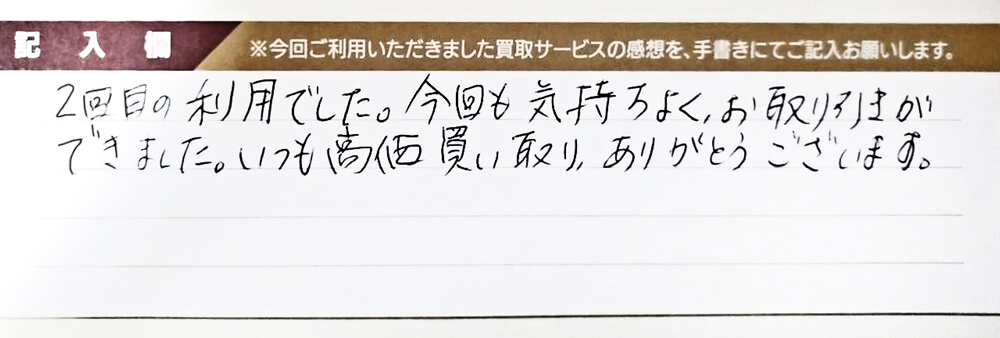 記入欄
※今回ご利用いただきました買取サービスの感想を、手書きにてご記入お願いします。
2回目の利用でした。今回も気持ちよく、お取り引きが
できました。いつも高価買い取り、ありがとうございます。